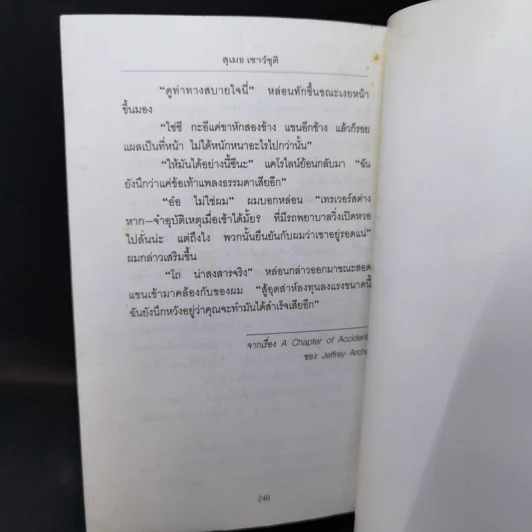 สุเมธ เชาว์ชุติ
“ดูท่าทางสบายใจนี่” หล่อนทักขึ้นขณะเงยหน้า
ขึ้นมอง
“ใช่ซี กะอีแค่ขาหักสองข้าง แขนอีกข้าง แล้วก็รอย
แผลเป็นที่หน้า ไม่ได้หนักหนาอะไรไปกว่านั้น”
“ให้มันได้อย่างนี้ซีนะ” แคโรไลน์ย้อนกลับมา “ฉัน
ยังนึกว่าแค่ข้อเท้าแพลงธรรมดาเสียอีก”
“อ๋อ ไม่ใช่ผม” ผมบอกหล่อน “เทรเวอร์สต่าง
หาก—จำอุบัติเหตุเมื่อเช้าได้มั้ย? ที่มีรถพยาบาลวิ่งเปิดหวอ
ไปลั่นน่ะ แต่ถึงไง พวกนั้นยืนยันกับผมว่าเขาอยู่รอดแน่”
ผมกล่าวเสริมขึ้น
“โถ น่าสงสารจริง” หล่อนกล่าวออกมาขณะสอด
แขนเข้ามาคล้องกับของผม “สู้อุตส่าห์ลงทุนลงแรงขนาดนี้
ฉันยังนึกหวังอยู่ว่าคุณจะทำมันได้สำเร็จเสียอีก”
จากเรื่อง A Chapter of Accident
ของ Jeffrey Arche
240